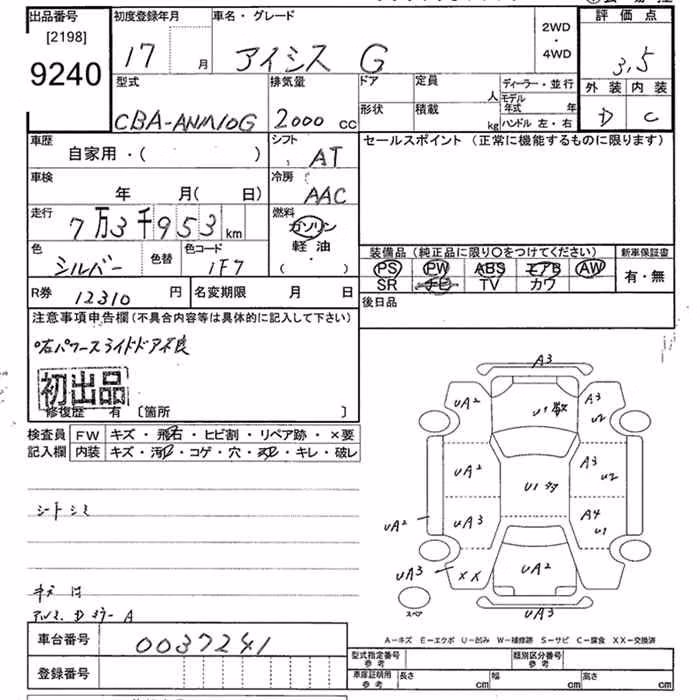 出品番号 初度登録年月 車名・グレード 2WD・4WD 評価点
[2198] 9240
17 月 アイシス G 3,5
型式 排気量 ドア 定員 人 ディーラー・並行 外装 内装
CBA-ANM10G 2000 cc 形状 積載 kg モデル年式 年 ハンドル 左・右 D C
車歴 自家用・( ) シフト AT セールスポイント (正常に機能するものに限ります)
車検 年 月( 日) 冷房 AAC
走行 7万3千953 km 燃料 ガソリン 軽油 ( ・ )
色 シルバー 色替 色コード 1F7
装備品 (純正品に限り○をつけてください) 新車保証書
PS PW ABS エアB AW 有・無
SR ナビ TV カワ
R券 12310 円 名変期限 月 日 後日品
注意事項申告欄 (不具合内容等は具体的に記入して下さい)
右パワースライドドア不良
初出品
修復歴 有 〔箇所 〕
検査員 FW キズ・飛石・ヒビ割・リペア跡・×要
記入欄 内装 キズ・汚れ・コゲ・穴・スレ・キレ・破レ
シートシミ
A3
UA2 U1 A3 U2
UA2 U1 A3 U2
UA2 UA3 A4 U1
UA3 XX UA2
スペア UA3
A-キズ E-エクボ U-凹み W-補修跡 S-サビ C-腐食 XX-交換済
車台番号 0037241
型式指定番号 参考 類別区分番号 参考
登録番号 車庫証明用 参考 長さ cm 幅 cm 高さ cm